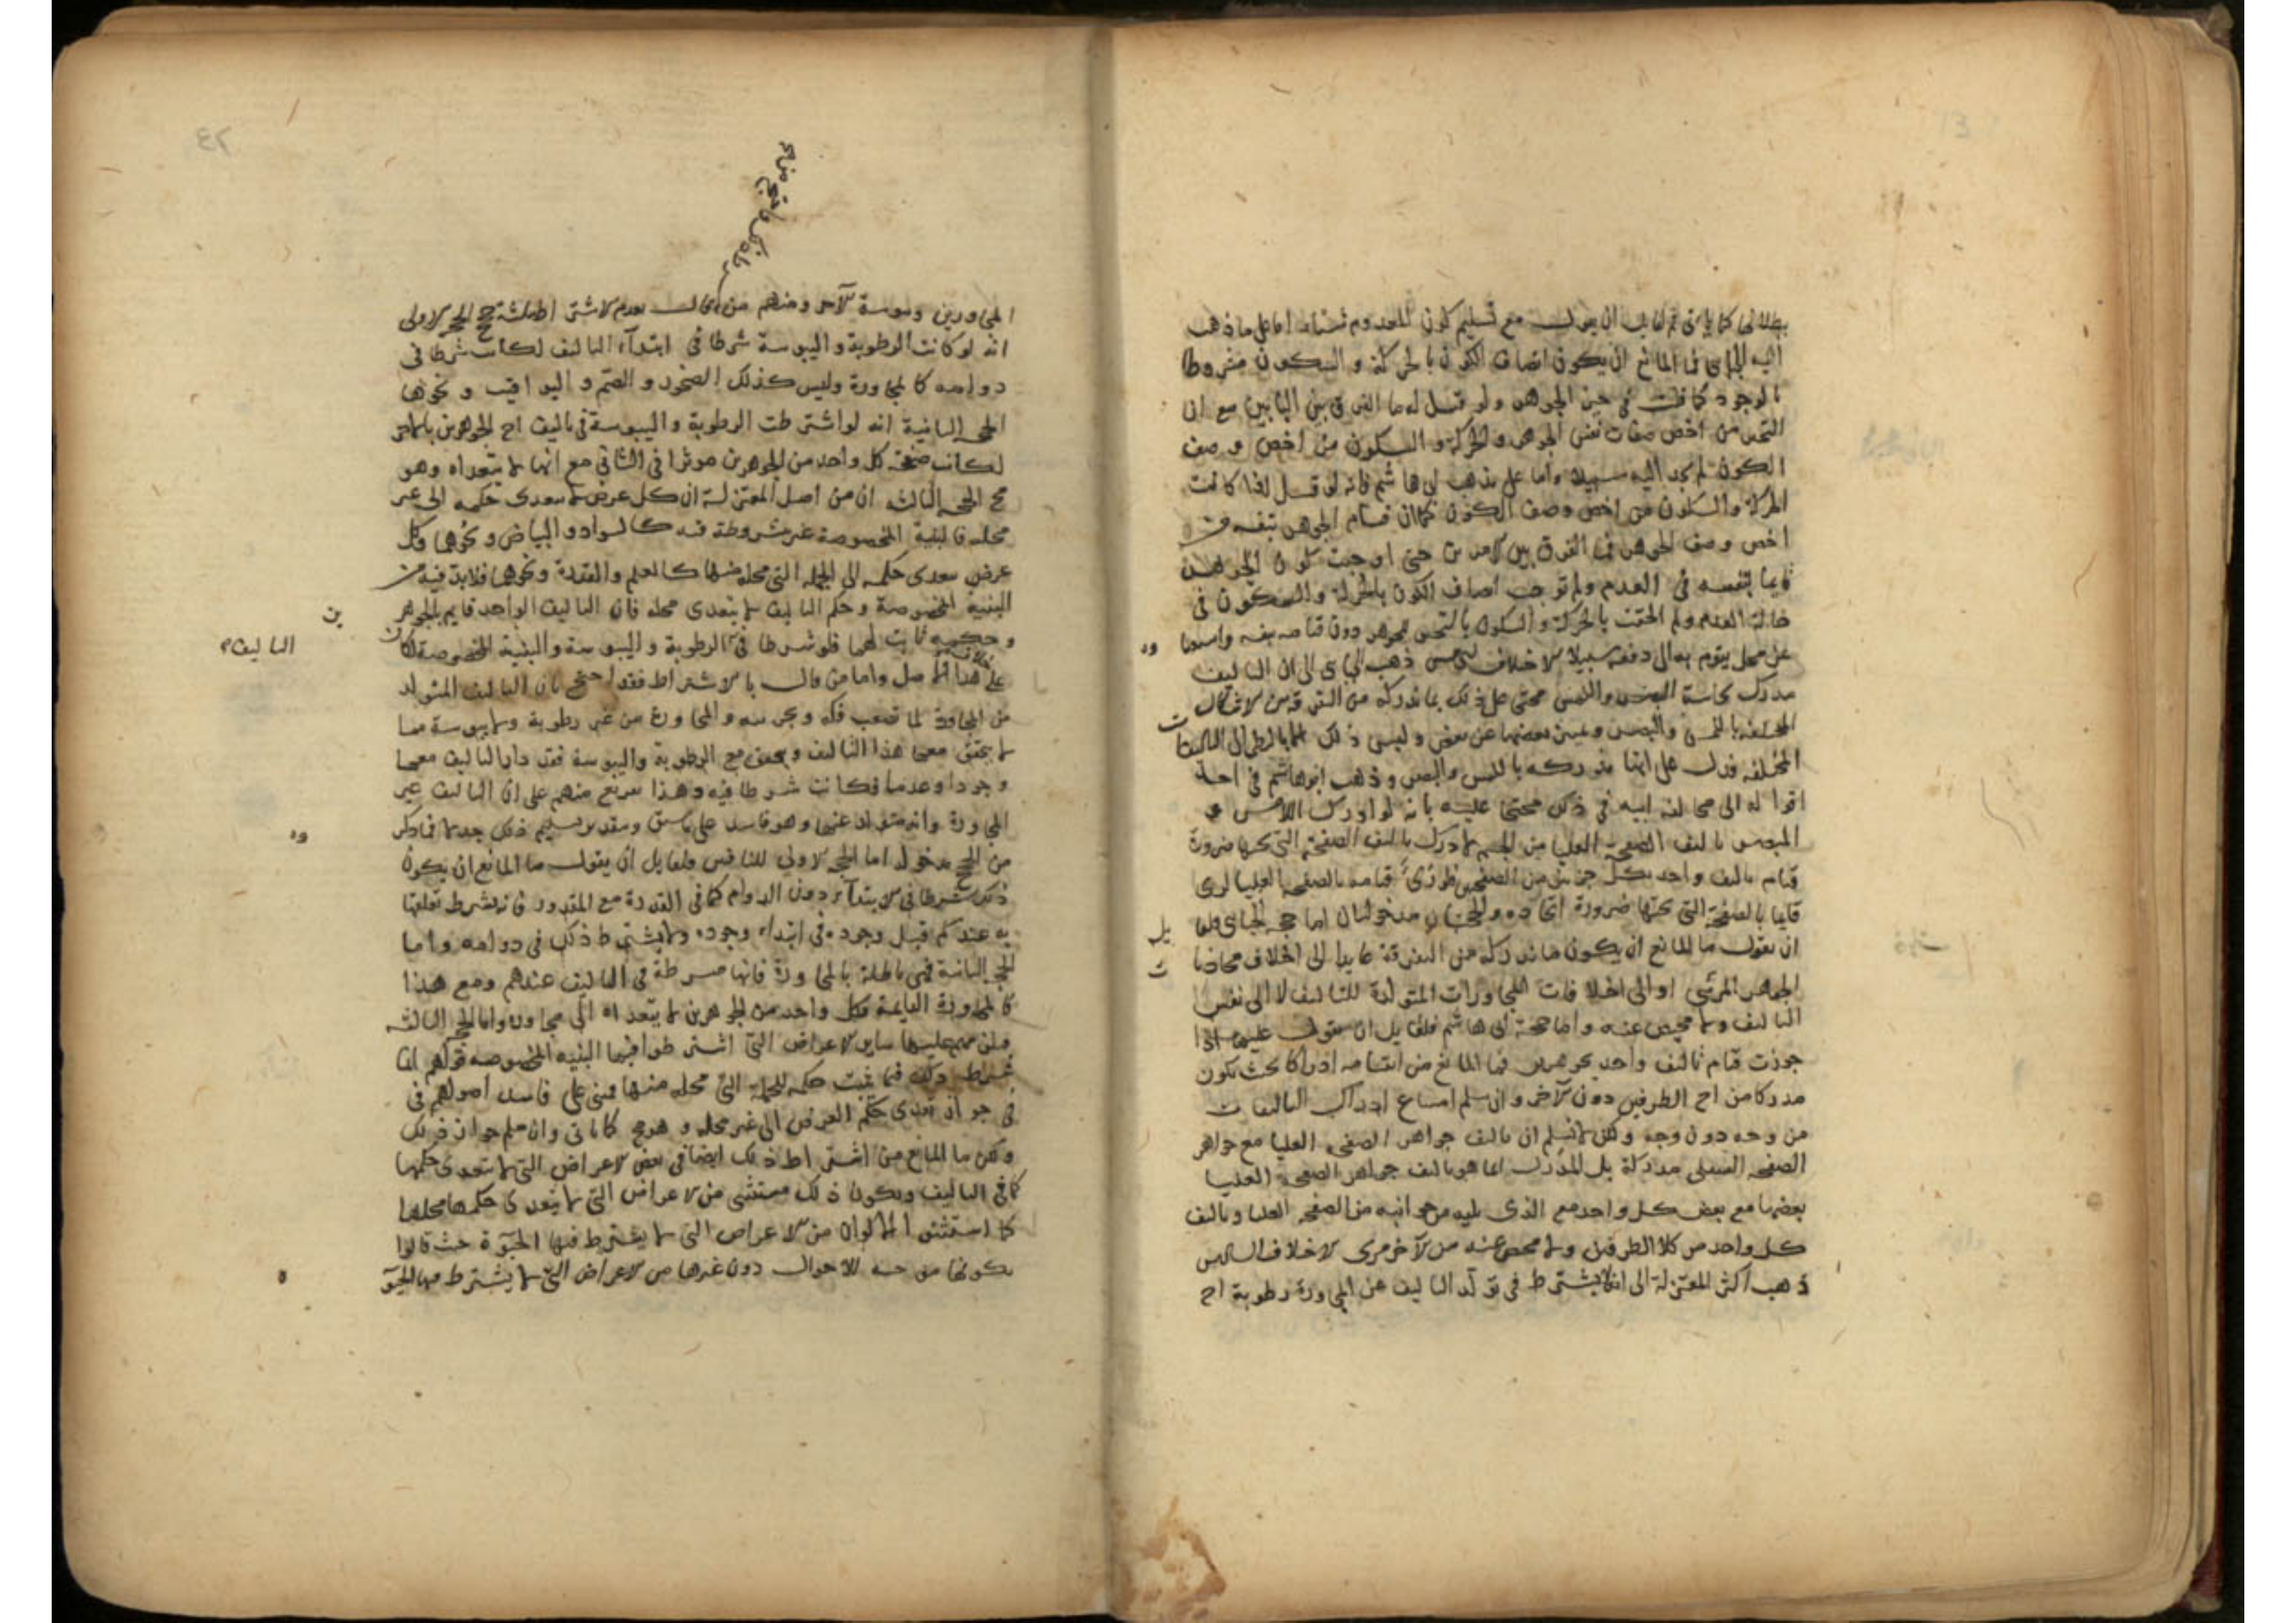 بطلانها كما ياتى ثم لقايل ان يقول مع تسليم كون المعدوم شيئا اما على ما ذهب
اليه الجباى فما المانع ان يكون اتصاف الكون بالحركة و السكون مشروطا
بالوجود كما قلت فى حيز الجوهر ولو قيل له ما الفرق بين البابين مع ان
التحيز من اخص صفات نفس الجوهر والحركة و السكون من اخص وصف
الكون لم يجد اليه سبيلا واما على مذهب ابى هاشم فانه لو قيل له اذا كانت
الحركة والسكون من اخص وصف الكون كما ان قيام الجوهر بنفسه من
اخص وصف الجوهر فما الفرق بين الامرين حتى اوجبت كون الجوهر
قايما بنفسه فى العدم ولم توجب اتصاف الكون بالحركة والسكون فى
حالة العدم ولم الحقت بالحركة و السكون بالتحيز للجوهر دون قيامه بنفسه
عن محل يقوم به الى دفعه سبيلا الاختلاف الخامس ذهب الجباى الى ان التاليف
مدرك بحاسة البصر واللمس محتجا على ذلك بما ندركه من التفرقة بين الاشكال
المختلفة باللمس والبصر وتمييز بعضها عن بعض وليس ذلك الا بالنظر الى التاليفات
المختلفة فدل على انها مدركه باللمس والبصر وذهب ابو هاشم فى احد
اقواله الى مخالفة ابيه فى ذلك محتجا عليه بانه لو ادرك اللامس و
المبصر تاليف الصفحة العليا من الجسم لادرك تاليف الصفحة التى تحتها ضرورة
قيام تاليف واحد بكل جزئين من الصفحتين فلو رئى قيامه بالصفحة العليا لرئى
قايما بالصفحة التى تحتها ضرورة اتحاده والحجتان مدخولتان اما حجة الجباى فلقايل
ان يقول ما المانع ان يكون ما ندركه من التفرقة عايدا الى اختلاف محاذيات
الجواهر المرئى او الى اختلافات المجاورات المتولدة للتاليف لا الى نفس
التاليف ولا محيص عنه واما حجة ابى هاشم فلقايل ان يقول عليها اذا
جوزت قيام تاليف واحد بجوهرين فما المانع من
مدركا من احد الطرفين دون الآخر وان سلم امتناع ادراك التاليفات
من وجه دون وجه ولكن لا نسلم ان تاليف جواهر الصفحة العليا مع جواهر
الصفحة السفلى مدركة بل المدرك انما هو تاليف جواهر الصفحة العليا
بعضها مع بعض كل واحد مع الذى يليه من جوانبه من الصفحة العليا وتاليف
كل واحد من كلا الطرفين ولا محيص عنه من الآخر مرى الاختلاف السادس
ذهب اكثر المعتزلة الى انه لا يشترط فى تولد التاليف عن المجاورة رطوبة احد
المجاورين ويبوسة الآخر ومنهم من قال بعدم الاشتراط محتجا الحجة الاولى
انه لو كانت الرطوبة و اليبوسة شرطا فى ابتدآء التاليف لكانت شرطا فى
دوامه كالمجاورة وليس كذلك الصخور و الصم و اليواقيت و نحوها
الحجة الثانية انه لو اشترطت الرطوبة و اليبوسة فى تاليف احد الجوهرين بالآخر
لكانت صفة كل واحد من الجوهرين موثرا فى الثانى مع انها لا تتعداه وهو
مح الحجة الثالثة ان من اصل المعتزلة ان كل عرض لا يتعدى حكمه الى غير
محله فالبنية المخصوصة غير مشروطة فيه كالسواد و البياض و نحوهما وكل
عرض يتعدى حكمه الى الجملة التى محله منها كالعلم والقدرة ونحوها فلا بد فيه من
البنية المخصوصة وحكم التاليف لا يتعدى محله فان التاليف الواحد قايم بالجوهر
ين
وحكمه ثابت لهما فلو شرطنا فى الرطوبة و اليبوسة والبنية المخصوصة لكان
التاليف
على خلاف هذا الاصل واما من قال بالاشتراط فقد احتج بان التاليف المتولد
من المجاورة لما تصعب فكه و والمجاورة من غير رطوبة ولا يبوسة مما
لا يتحقق معها هذا التاليف ويتحقق مع الرطوبة واليبوسة فقد دار التاليف معهما
وجودا وعدما فكانت شرطا فيه وهذا تفريع منهم على ان التاليف غير
المجاورة وانه متولد عنها وهو فاسد على ما سبق وبتقدير تسليم ذلك جدلا فما ذكروه
من الحجج مدخولة اما الحجة الاولى للنافين فلقايل ان يقول ما المانع ان يكون
ذلك شرطا فى الابتداء دون الدوام كما فى القدرة مع المقدور فانه يشترط تعلقها
به عندكم قبل وجوده فى ابتداء وجوده ولا يشترط ذلك فى دوامه واما
الحجة الثانية فهى باطلة بالمجاورة فانها مشروطة فى التاليف عندهم ومع هذا
كالمجاورة القايمة بكل واحد من الجوهرين لا يتعداه الى مجاوره واما الحجة الثالثة
ساير الاعراض التى اشترطوا فيها البنيه المخصوصه قولهم انما
شرط ذلك فيما يثبت حكمه للجملة التى محله منها فمبنى على فاسد اصولهم فى
جواز تعدى حكم العرض الى غير محله و هو مح كما ياتى وان سلم جواز ذلك
ولكن ما المانع من اشتراط ذلك ايضا فى بعض الاعراض التى لا يتعدى حكمها
كما فى التاليف ويكون ذلك مستثنى من الاعراض التى لا يتعدى حكمها محلها
كما استثنوا الاكوان من الاعراض التى لا يشترط فيها الحيوة حيث قالوا
بكونها موجبه للاحوال دون غيرها من الاعراض التى لا يشترط فيها الحيوة